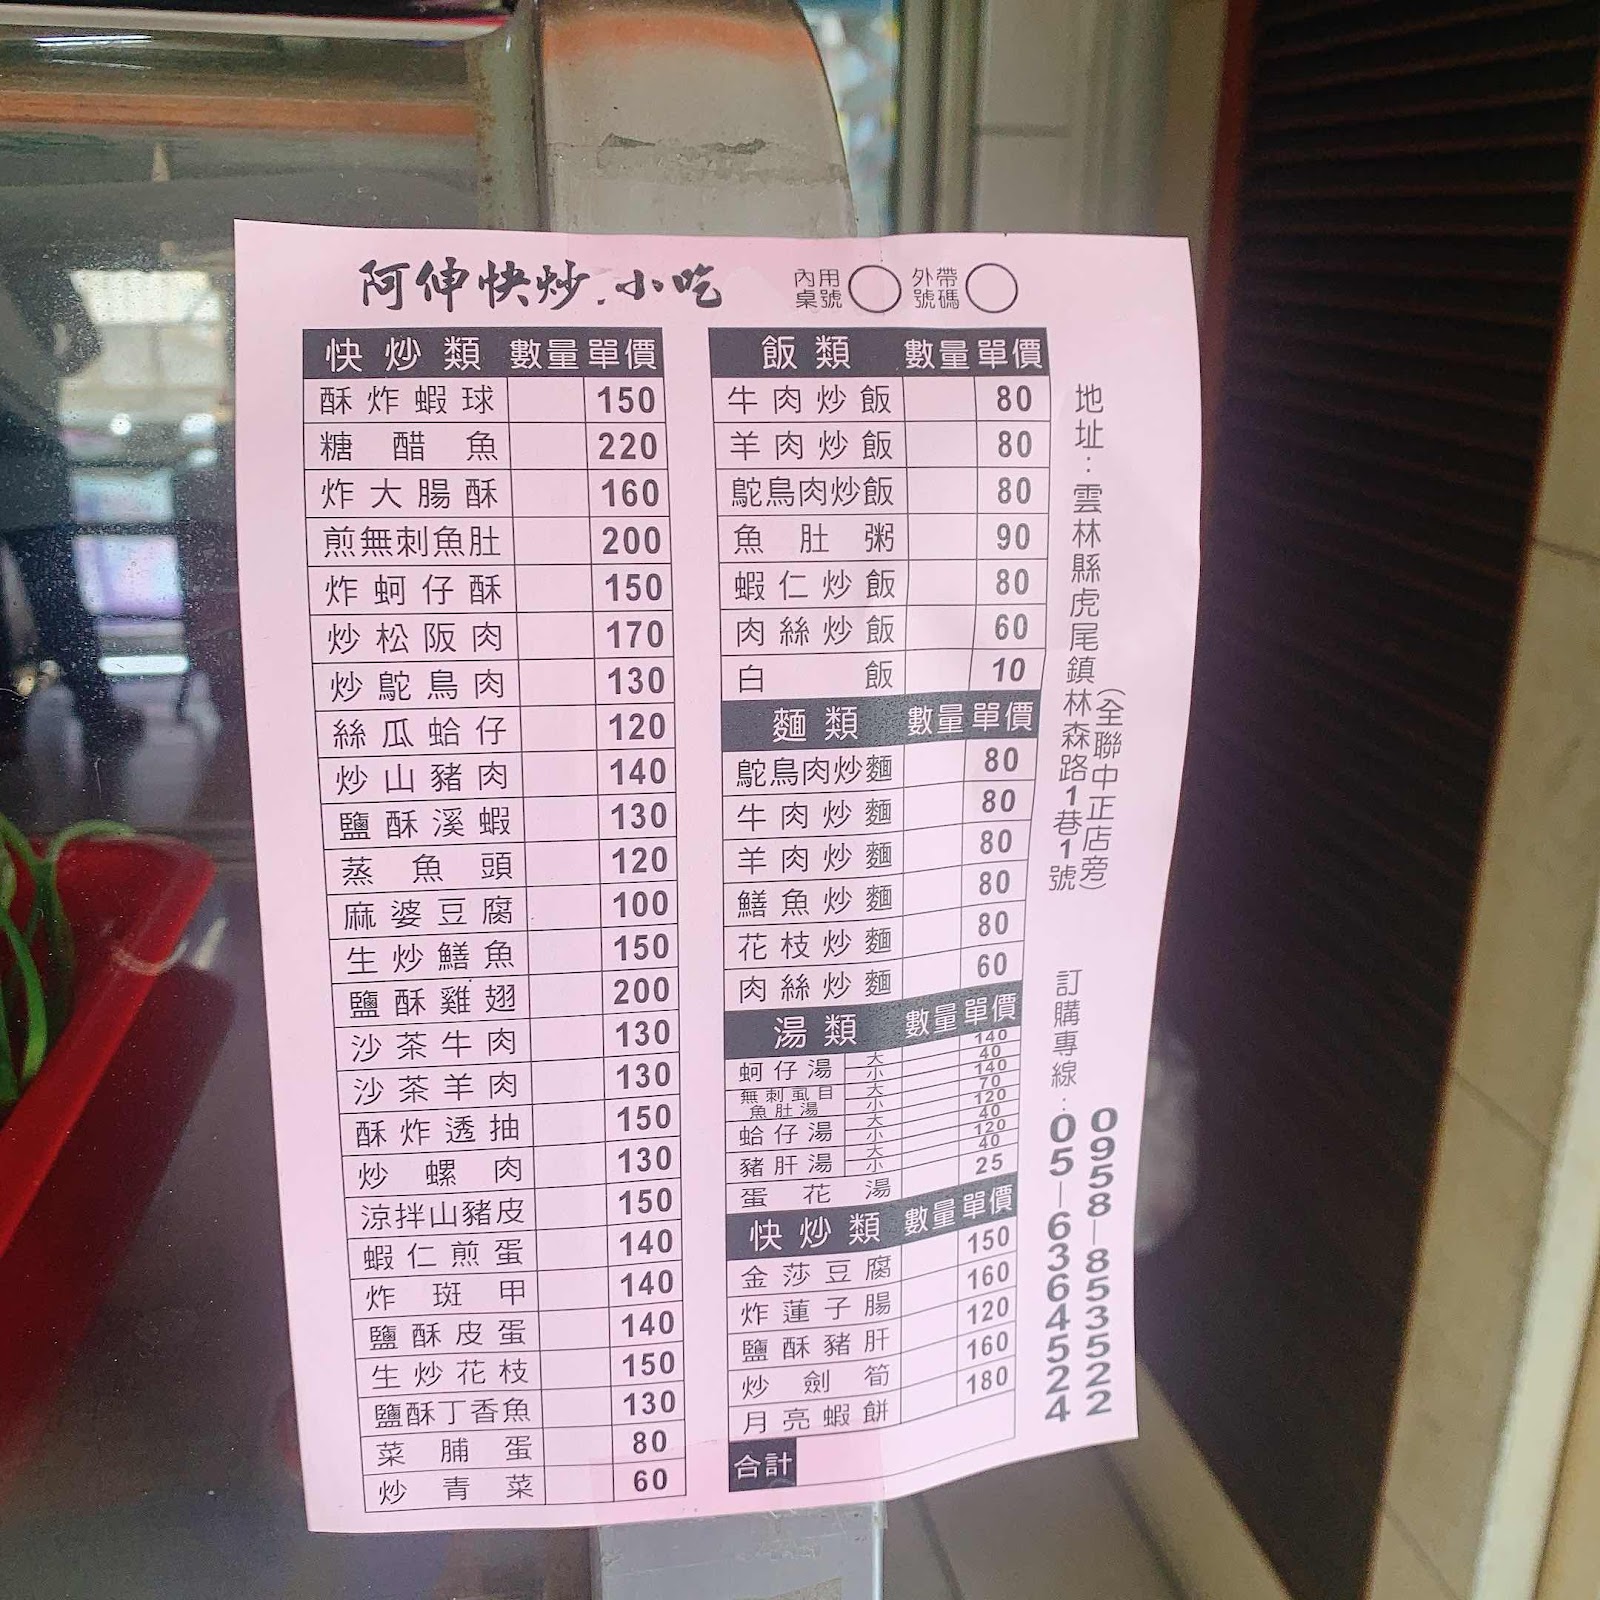 阿伸快炒.小吃
內用桌號 外帶號碼
快炒類 數量 單價
酥炸蝦球 150
糖醋魚 220
炸大腸酥 160
煎無刺魚肚 200
炸蚵仔酥 150
炒松阪肉 170
炒鴕鳥肉 130
絲瓜蛤仔 120
炒山豬肉 140
鹽酥溪蝦 130
蒸魚頭 120
麻婆豆腐 100
生炒鱔魚 150
鹽酥雞翅 200
沙茶牛肉 130
沙茶羊肉 130
酥炸透抽 150
炒螺肉 130
涼拌山豬皮 150
蝦仁煎蛋 140
炸斑甲 140
鹽酥皮蛋 140
生炒花枝 150
鹽酥丁香魚 130
菜脯蛋 80
炒青菜 60
飯類 數量 單價
牛肉炒飯 80
羊肉炒飯 80
鴕鳥肉炒飯 80
魚肚粥 90
蝦仁炒飯 80
肉絲炒飯 60
白飯 10
麵類 數量 單價
鴕鳥肉炒麵 80
牛肉炒麵 80
羊肉炒麵 80
鱔魚炒麵 80
花枝炒麵 80
肉絲炒麵 60
湯類 數量 單價
蚵仔湯 大 140
小 40
無刺虱目魚肚湯 大 140
小 70
蛤仔湯 大 120
小 40
豬肝湯 大 120
小 40
蛋花湯 25
快炒類 數量 單價
金莎豆腐 150
炸蓮子腸 160
鹽酥豬肝 120
炒劍筍 160
月亮蝦餅 180
合計
地址:雲林縣虎尾鎮林森路1巷1號
(全聯中正店旁)
訂購專線:05-6364524
0958-853522